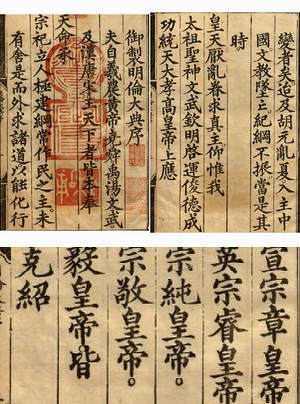 御製明倫大典序
夫自羲農黃帝堯舜禹湯文武
及漢唐宋主天下者皆本奉
天命承
宗祀立人極建綱常作民之主未
有舍是而外求諸道以能化行
變者矣迨及胡元亂夏入主中
國文教墜亡紀綱不振當是其
時
皇天厭亂眷求真主仰惟我
太祖聖神文武欽明啓運俊德成
功統天大孝高皇帝上應
宣宗章皇帝
英宗睿皇帝
宗純皇帝。
宗敬皇帝。
毅皇帝皆
克紹